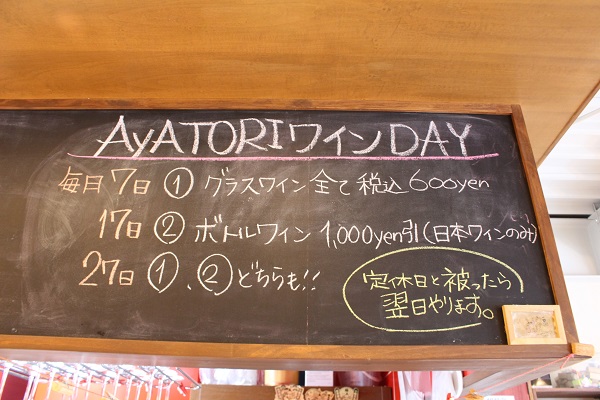 AyATORIワインDAY
毎月7日 ① グラスワイン全て税込600yen
17日 ② ボトルワイン 1,000yen引(日本ワインのみ)
27日 ①、②どちらも!!
定休日と被ったら
翌日やります。